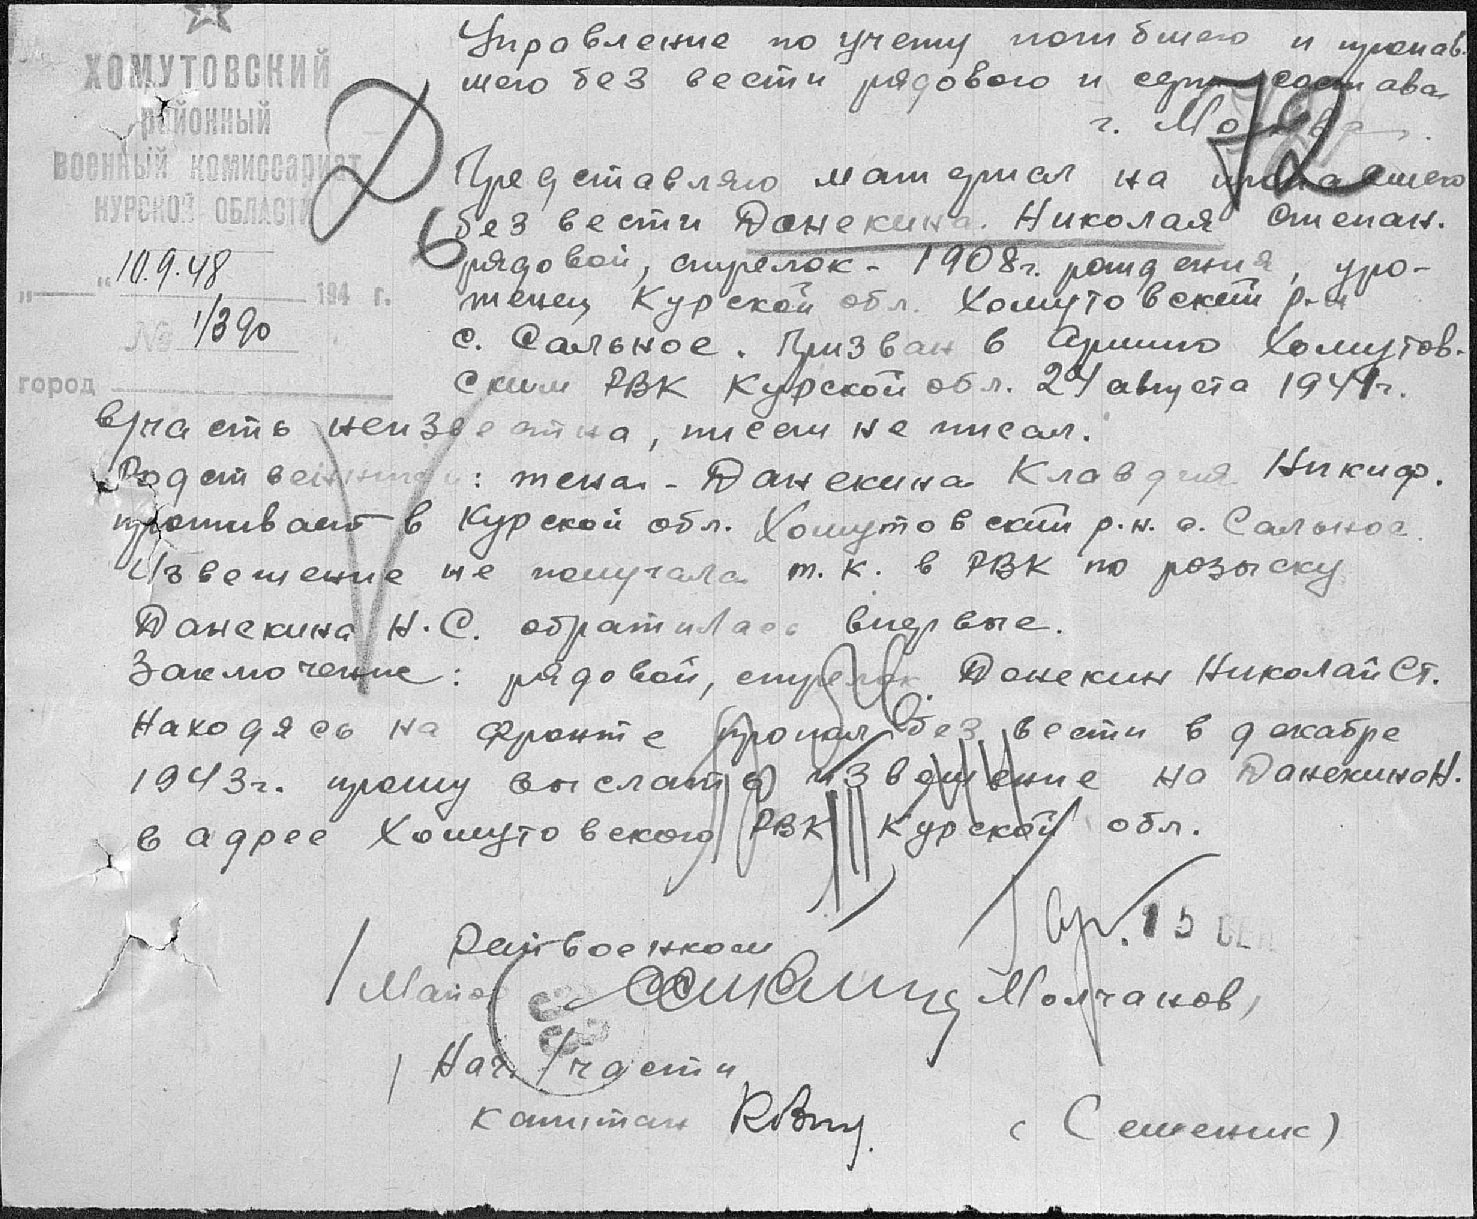 ХОМУТОВСКИЙ
районный
военный комиссариат
КУРСКОЙ ОБЛАСТИ
"——" 10.9.48 194 г.
№ 1/390
город
Управление по учету погибшего и пропав-
шего без вести рядового и серж состава
г. Москва
72
Представляю материал на пропавшего
без вести Данекина Николая Степан.
рядовой, стрелок - 1908 г. рождения, уро-
женец Курской обл. Хомутовский р-н
с. Сальное. Призван в Армию Хомутов-
ским РВК Курской обл. 24 августа 1941 г.
в/часть неизвестна, писем не писал.
Родственники: жена - Данекина Клавдия Никиф.
проживает в Курской обл. Хомутовский р.н. с. Сальное
Извещение не получала т.к. в РВК по розыску
Данекина Н.С. обратилась впервые.
Заключение: рядовой, стрелок Данекин Николай Ст.
находясь на фронте пропал без вести в декабре
1943 г. прошу выслать извещение на Данекина Н.
в адрес Хомутовского РВК Курской обл.
15 СЕН
Райвоенком
/Майор Молчанов/
Нач. 1/части
капитан (Семеник)